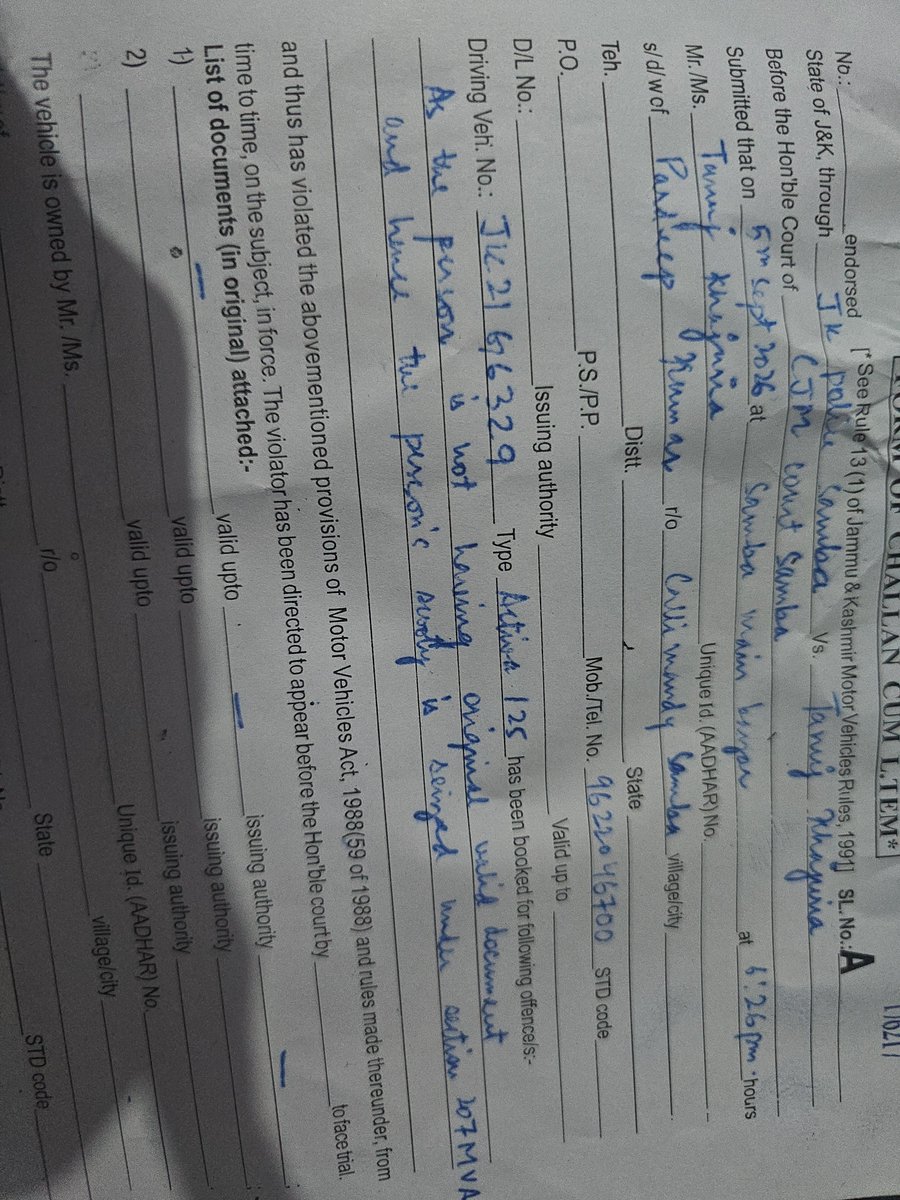 FORM OF CHALLAN CUM I.TEM*
[*See Rule 13 (1) of Jammu & Kashmir Motor Vehicles Rules, 1991] SL. No.: A
No.: endorsed
State of J&K, through JK police Samba Vs. Tanuj Khajuria
Before the Hon'ble Court of CJM court Samba
Submitted that on 5th Sept 2026 at Samba main bazar at 6:26pm hours
Mr. /Ms. Tanuj Khajuria Unique Id. (AADHAR) No.
s/d/w of Pardeep Kumar r/o mandy Samba village/city
Teh. Distt. State
P.O. P.S./P.P. Mob./Tel. No. 9622046700 STD code
D/L No.: Issuing authority Valid up to
Driving Veh. No.: JK21G6329 Type Activa 125 has been booked for following offence/s:-
As the person is not having original valid document
and hence the person's scooty is seized under section 207 MVA
and thus has violated the abovementioned provisions of Motor Vehicles Act, 1988(59 of 1988) and rules made thereunder, from
time to time, on the subject, in force. The violator has been directed to appear before the Hon'ble court by to face trial.
List of documents (in original) attached:-
1) valid upto issuing authority
2) valid upto issuing authority
valid upto issuing authority
The vehicle is owned by Mr. /Ms. Unique Id. (AADHAR) No.
r/o village/city
State STD code